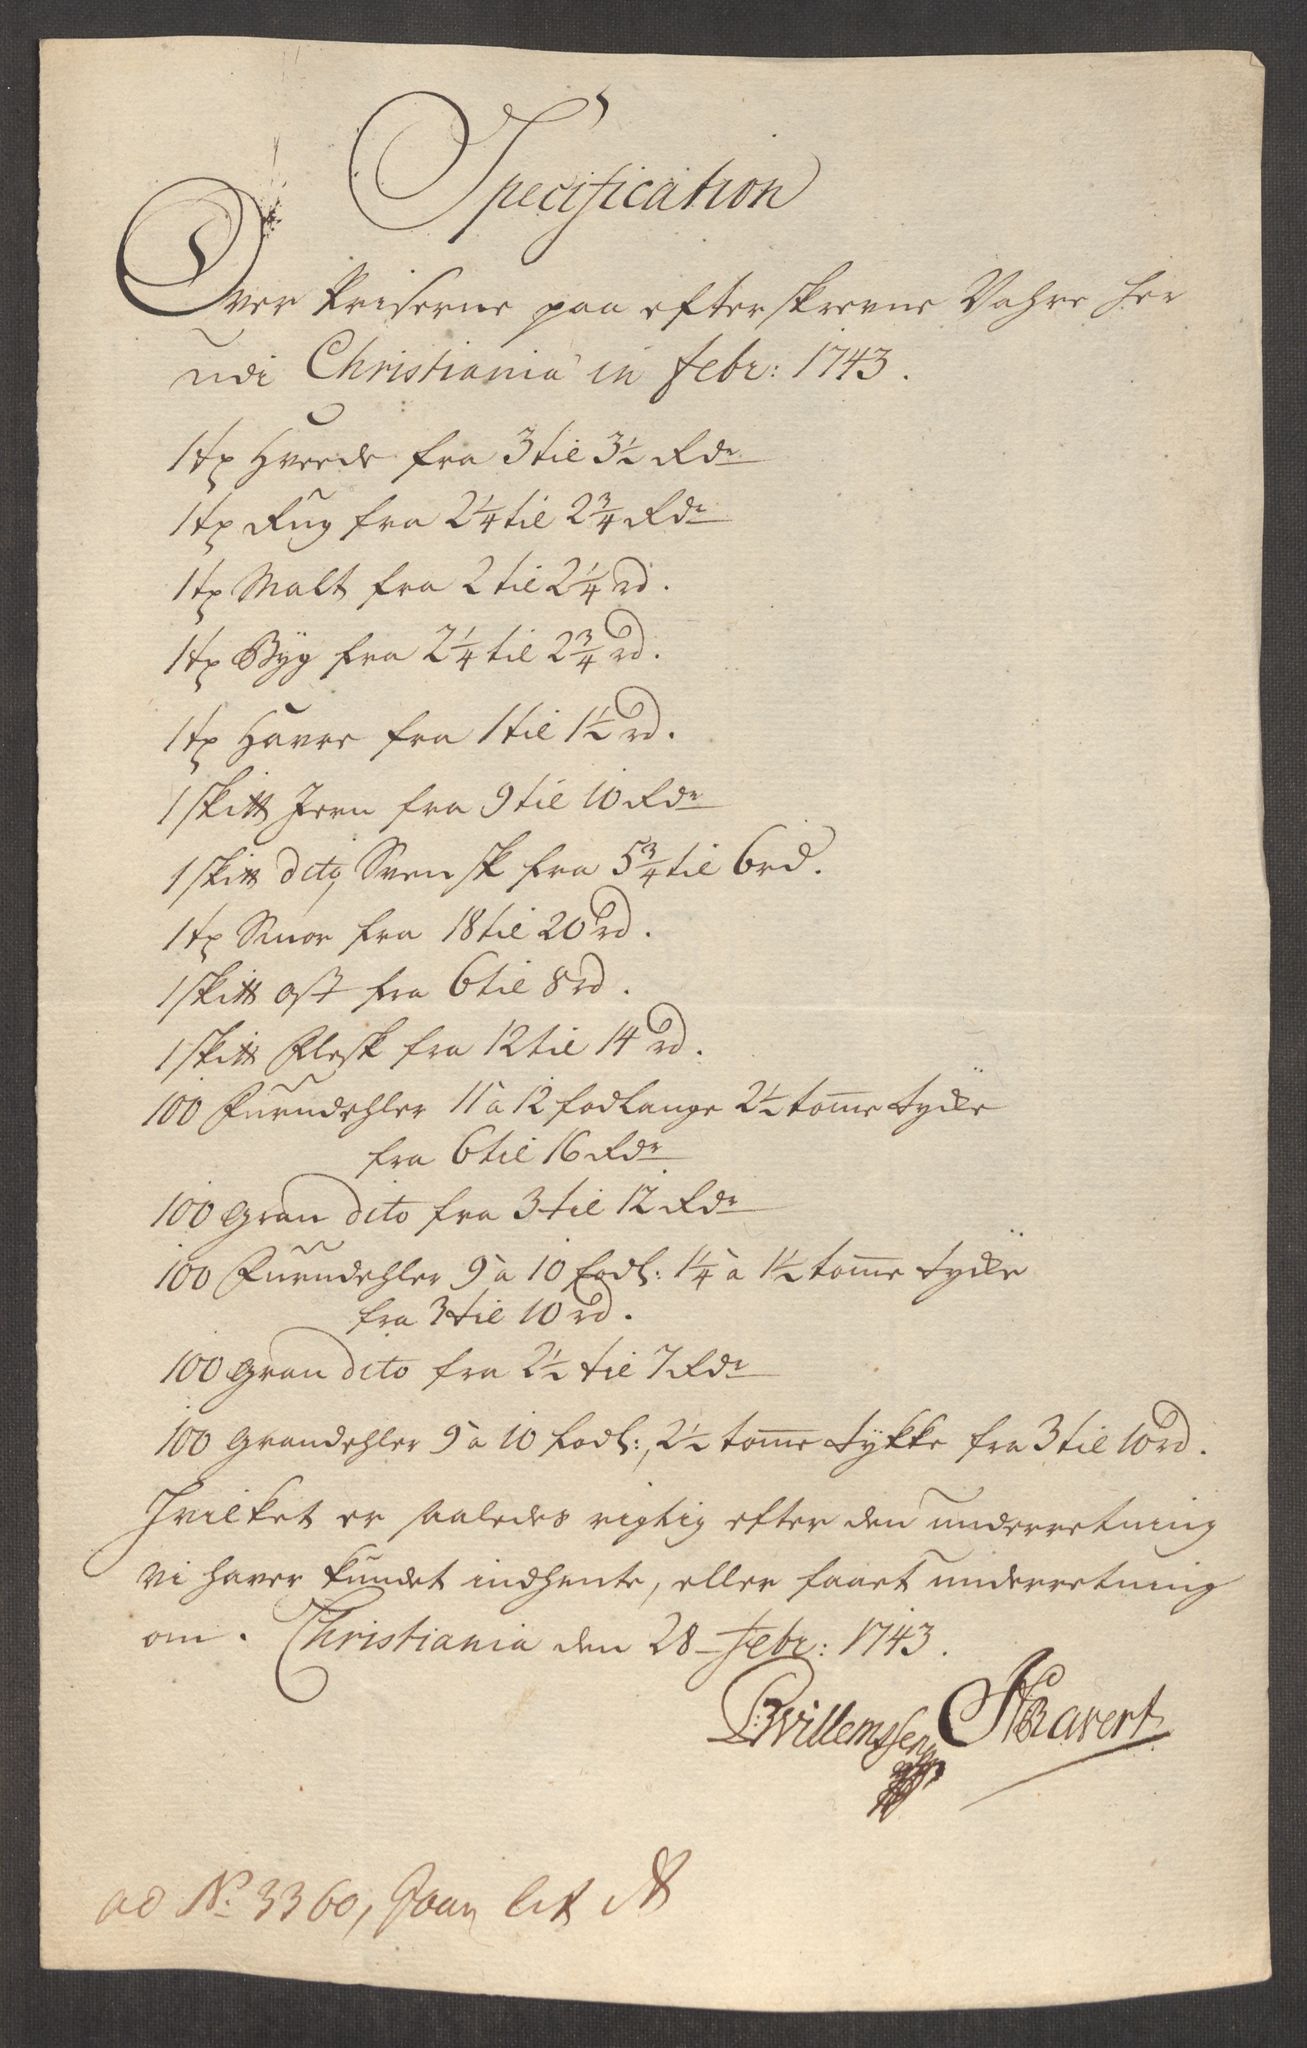 Specification
Over Priserne paa efterskrevne Vahre her
udi Christiania in Febr: 1743.
1 tø Hvede fra 3 til 3½ Rdr
1 tø Rug fra 2¼ til 2¾ Rdr
1 tø Malt fra 2 til 2¼ rd.
1 tø Byg fra 2¼ til 2¾ rd.
1 tø Havre fra 1 til 1½ rd.
1 skitt Jern fra 9 til 10 Rdr
1 skitt dito Svensk fra 5¾ til 6 rd.
1 tø Smør fra 18 til 20 rd.
1 skitt ost fra 6 til 8 rd.
1 skitt Flesk fra 12 til 14 rd.
100 Furudehler 11 à 12 fod Lange 2½ tomme tycke
fra 6 til 16 Rdr
100 gran dito fra 3 til 12 Rdr
100 Furudehler 9 à 10 fodl: 1¼ à 1½ tomme tycke
fra 3 til 10 rd.
100 gran dito fra 2½ til 7 Rdr
100 Grandehler 9 à 10 fodl:, 2½ tomme tykke fra 3 til 10 rd.
Hvilket er saaledes rigtig efter den underretning
vi haver kundet indhente, eller faaet underretning
om. Christiania den 28 Febr: 1743.
Willemssen Ravert
ad No. 3360, Lit A